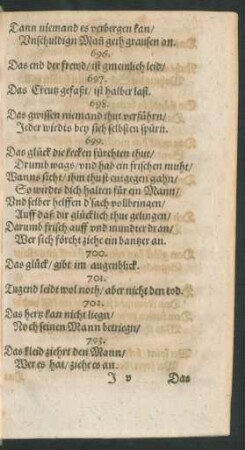 Dann niemand es verbergen kan/
Vnschuldign Man geth grausen an.
696.
Das end der frewd/ ist gmeinlich leid/
697.
Das Creutz gefast/ ist halber last.
698.
Das gwissen niemand thut verführn/
Jeder wirdts bey sich selbsten spürn.
699.
Das glück die kecken fürchten thut/
Drumb wags/ vnd hab en frischen muht/
Wanns sicht/ ihm thust entgegen gahn/
So wirdts dich halten für ein Mann/
Vnd selber helffen d'sach vollbringen/
Auff daß dir glücklich thut gelingen/
Darumb frisch auff vnd mundter dran/
Wer sich förcht ziehe ein banzer an.
700.
Das glück/ gibt im augenblick.
701.
Tugend leidt wol noth/ aber nicht den tod.
702.
Das hertz kan nicht liegn/
Noch seinen Mann betriegn/
703.
Das kleid ziehrt den Mann/
Wer es hat/ zieh es an.
J v Das